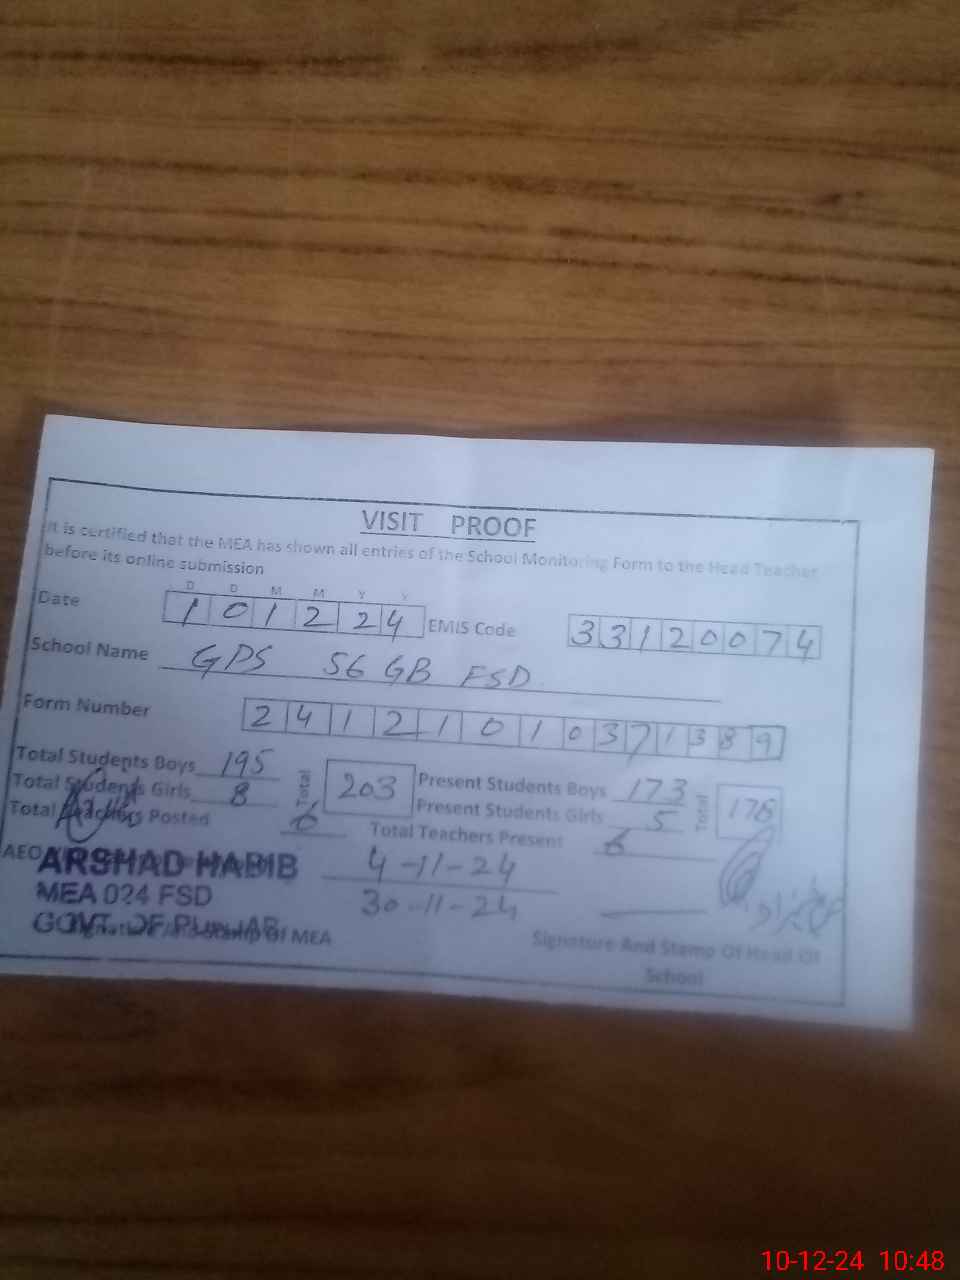 VISIT PROOF
It is certified that the MEA has shown all entries of the School Monitoring Form to the Head Teacher
before its online submission
D D M M Y Y
Date 101224 EMIS Code 33120074
School Name GPS 56 GB FSD
Form Number 24121010371389
Total Students Boys 195 Total 203 Present Students Boys 173 Total 178
Total Students Girls 8 Present Students Girls 5
Total Teachers Posted 6 Total Teachers Present 6
AEO 4-11-24
ARSHAD HABIB
MEA 024 FSD 30-11-24
GOVT. OF PUNJAB
Signature And Stamp Of MEA Signature And Stamp Of Head Of
School
10-12-24 10:48